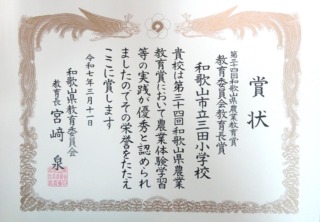 賞状
第三十四回和歌山県農業教育賞
教育委員会教育長賞
和歌山市立三田小学校
貴校は第三十四回和歌山県農業
教育賞において農業体験学習
等の実践が優秀と認められ
ましたのでその栄誉をたたえ
ここに賞します
令和七年三月十一日
和歌山県教育委員会
教育長 宮﨑 泉